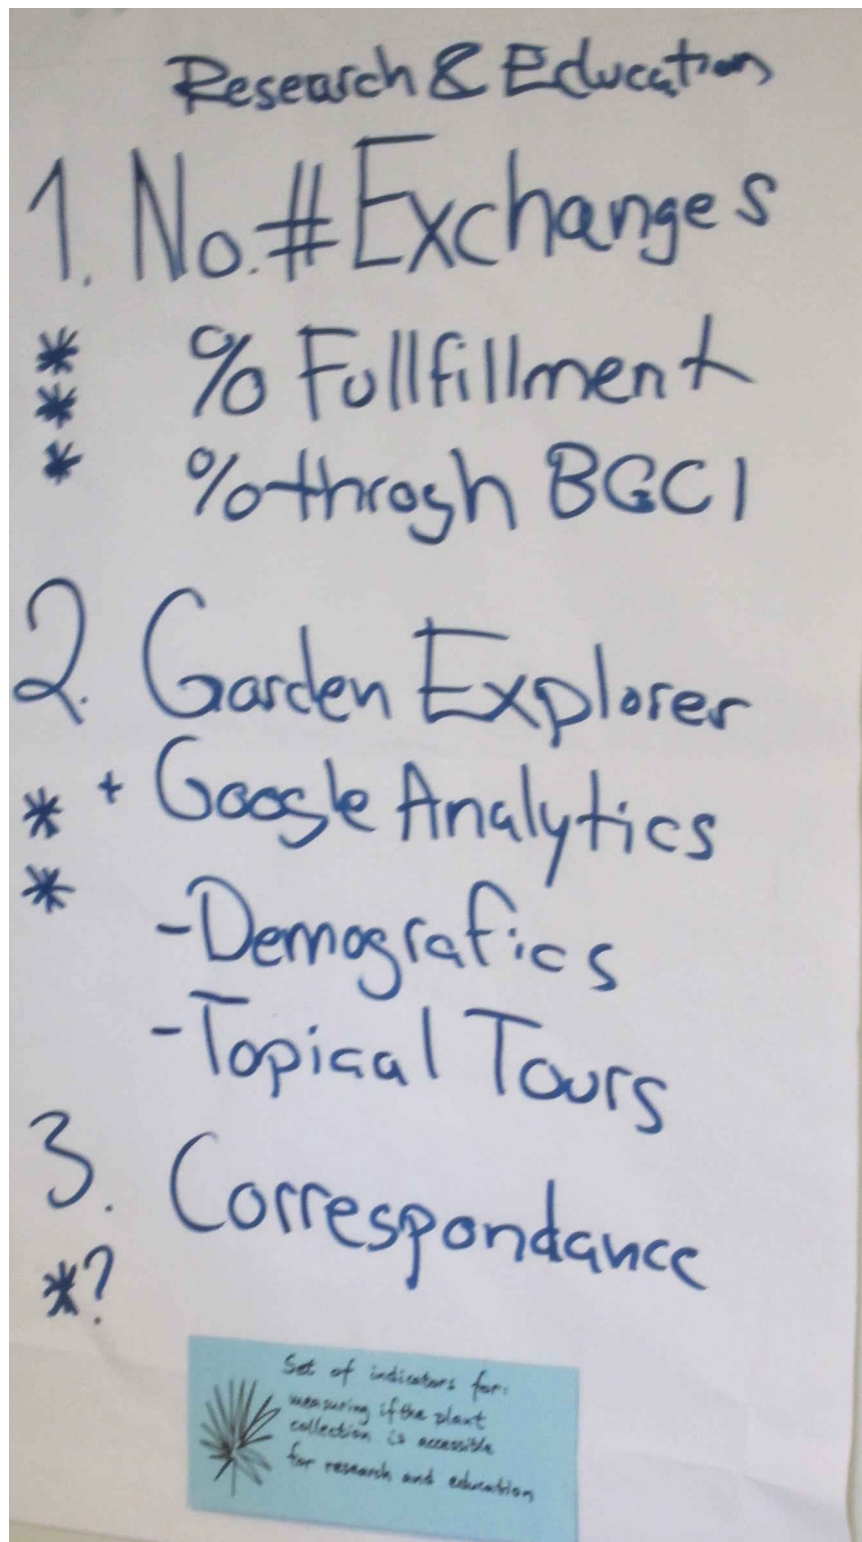 Research & Education
1. No. # Exchanges
* % Fullfillment
*
* % throgh BGCI
2. Garden Explorer
* + Google Analytics
*
- Demografics
- Topical Tours
3. Correspondance
*?
Set of indicators for:
measuring if the plant
collection is accessible
for research and education